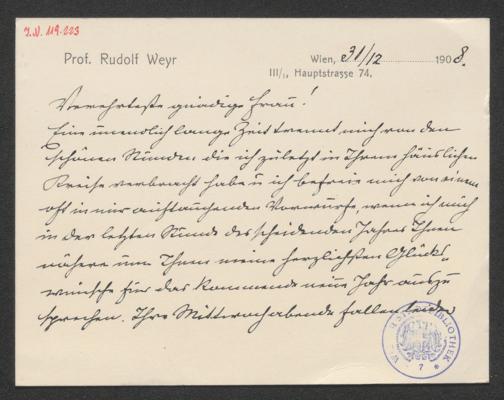 I.N. 119.223
Prof. Rudolf Weyr
Wien, 31/12 1908.
III/1, Hauptstrasse 74.
Verehrteste gnädige Frau!
Eine unendlich lange Zeit trennt mich von den
schönen Stunden die ich zuletzt in Ihrem häuslichen
Kreise verbracht habe u ich befreie mich von einem
oft in mir auftauchenden Vorwurfe, wenn ich mich
in der letzten Stunde des scheidenden Jahres Ihnen
nähere um Ihnen meine herzlichsten Glück-
wünsche für das kommende neue Jahr auszu
sprechen. Ihre Mittwochabende fallen leider
BIBLIOTHEK
7